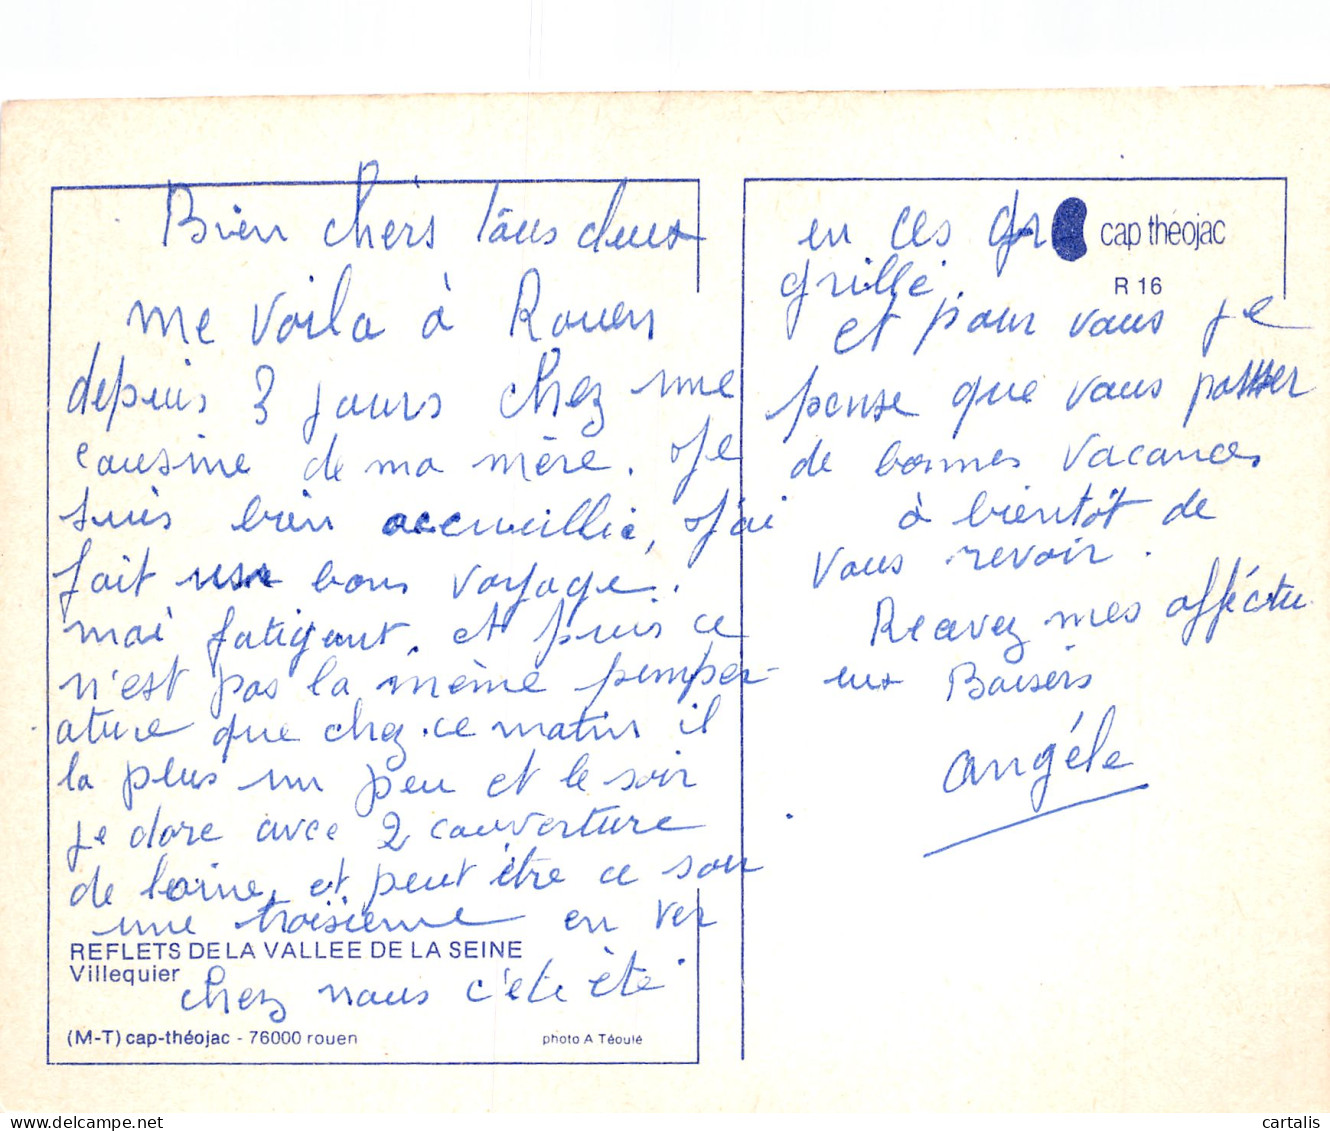 Bien chers tous deux
me voila à Rouen
depuis 3 jours chez une
cousine de ma mère. Je
suis bien accueillie, J'ai
fait un bon voyage.
mai fatigant. et puis ce
n'est pas la même temper-
ature que chez. ce matin il
la plus un peu et le soir
je dore avec 2 couverture
de laine, et peut être ce soir
une troisieme en ver
REFLETS DE LA VALLEE DE LA SEINE
Villequier
chez nous c'eté été
(M-T) cap-théojac - 76000 rouen
photo A Téoulé
en ces
cap théojac
grillé.
R 16
et pour vous je
pense que vous passer
de bonnes vacances
à bientôt de
vous revoir.
Recevez mes afféctu
eux Baisers
Angéle
cartalis.com